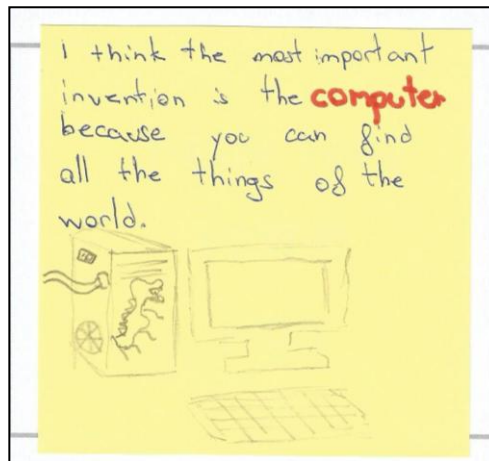 i think the most important
invention is the computer
because you can find
all the things of the
world.